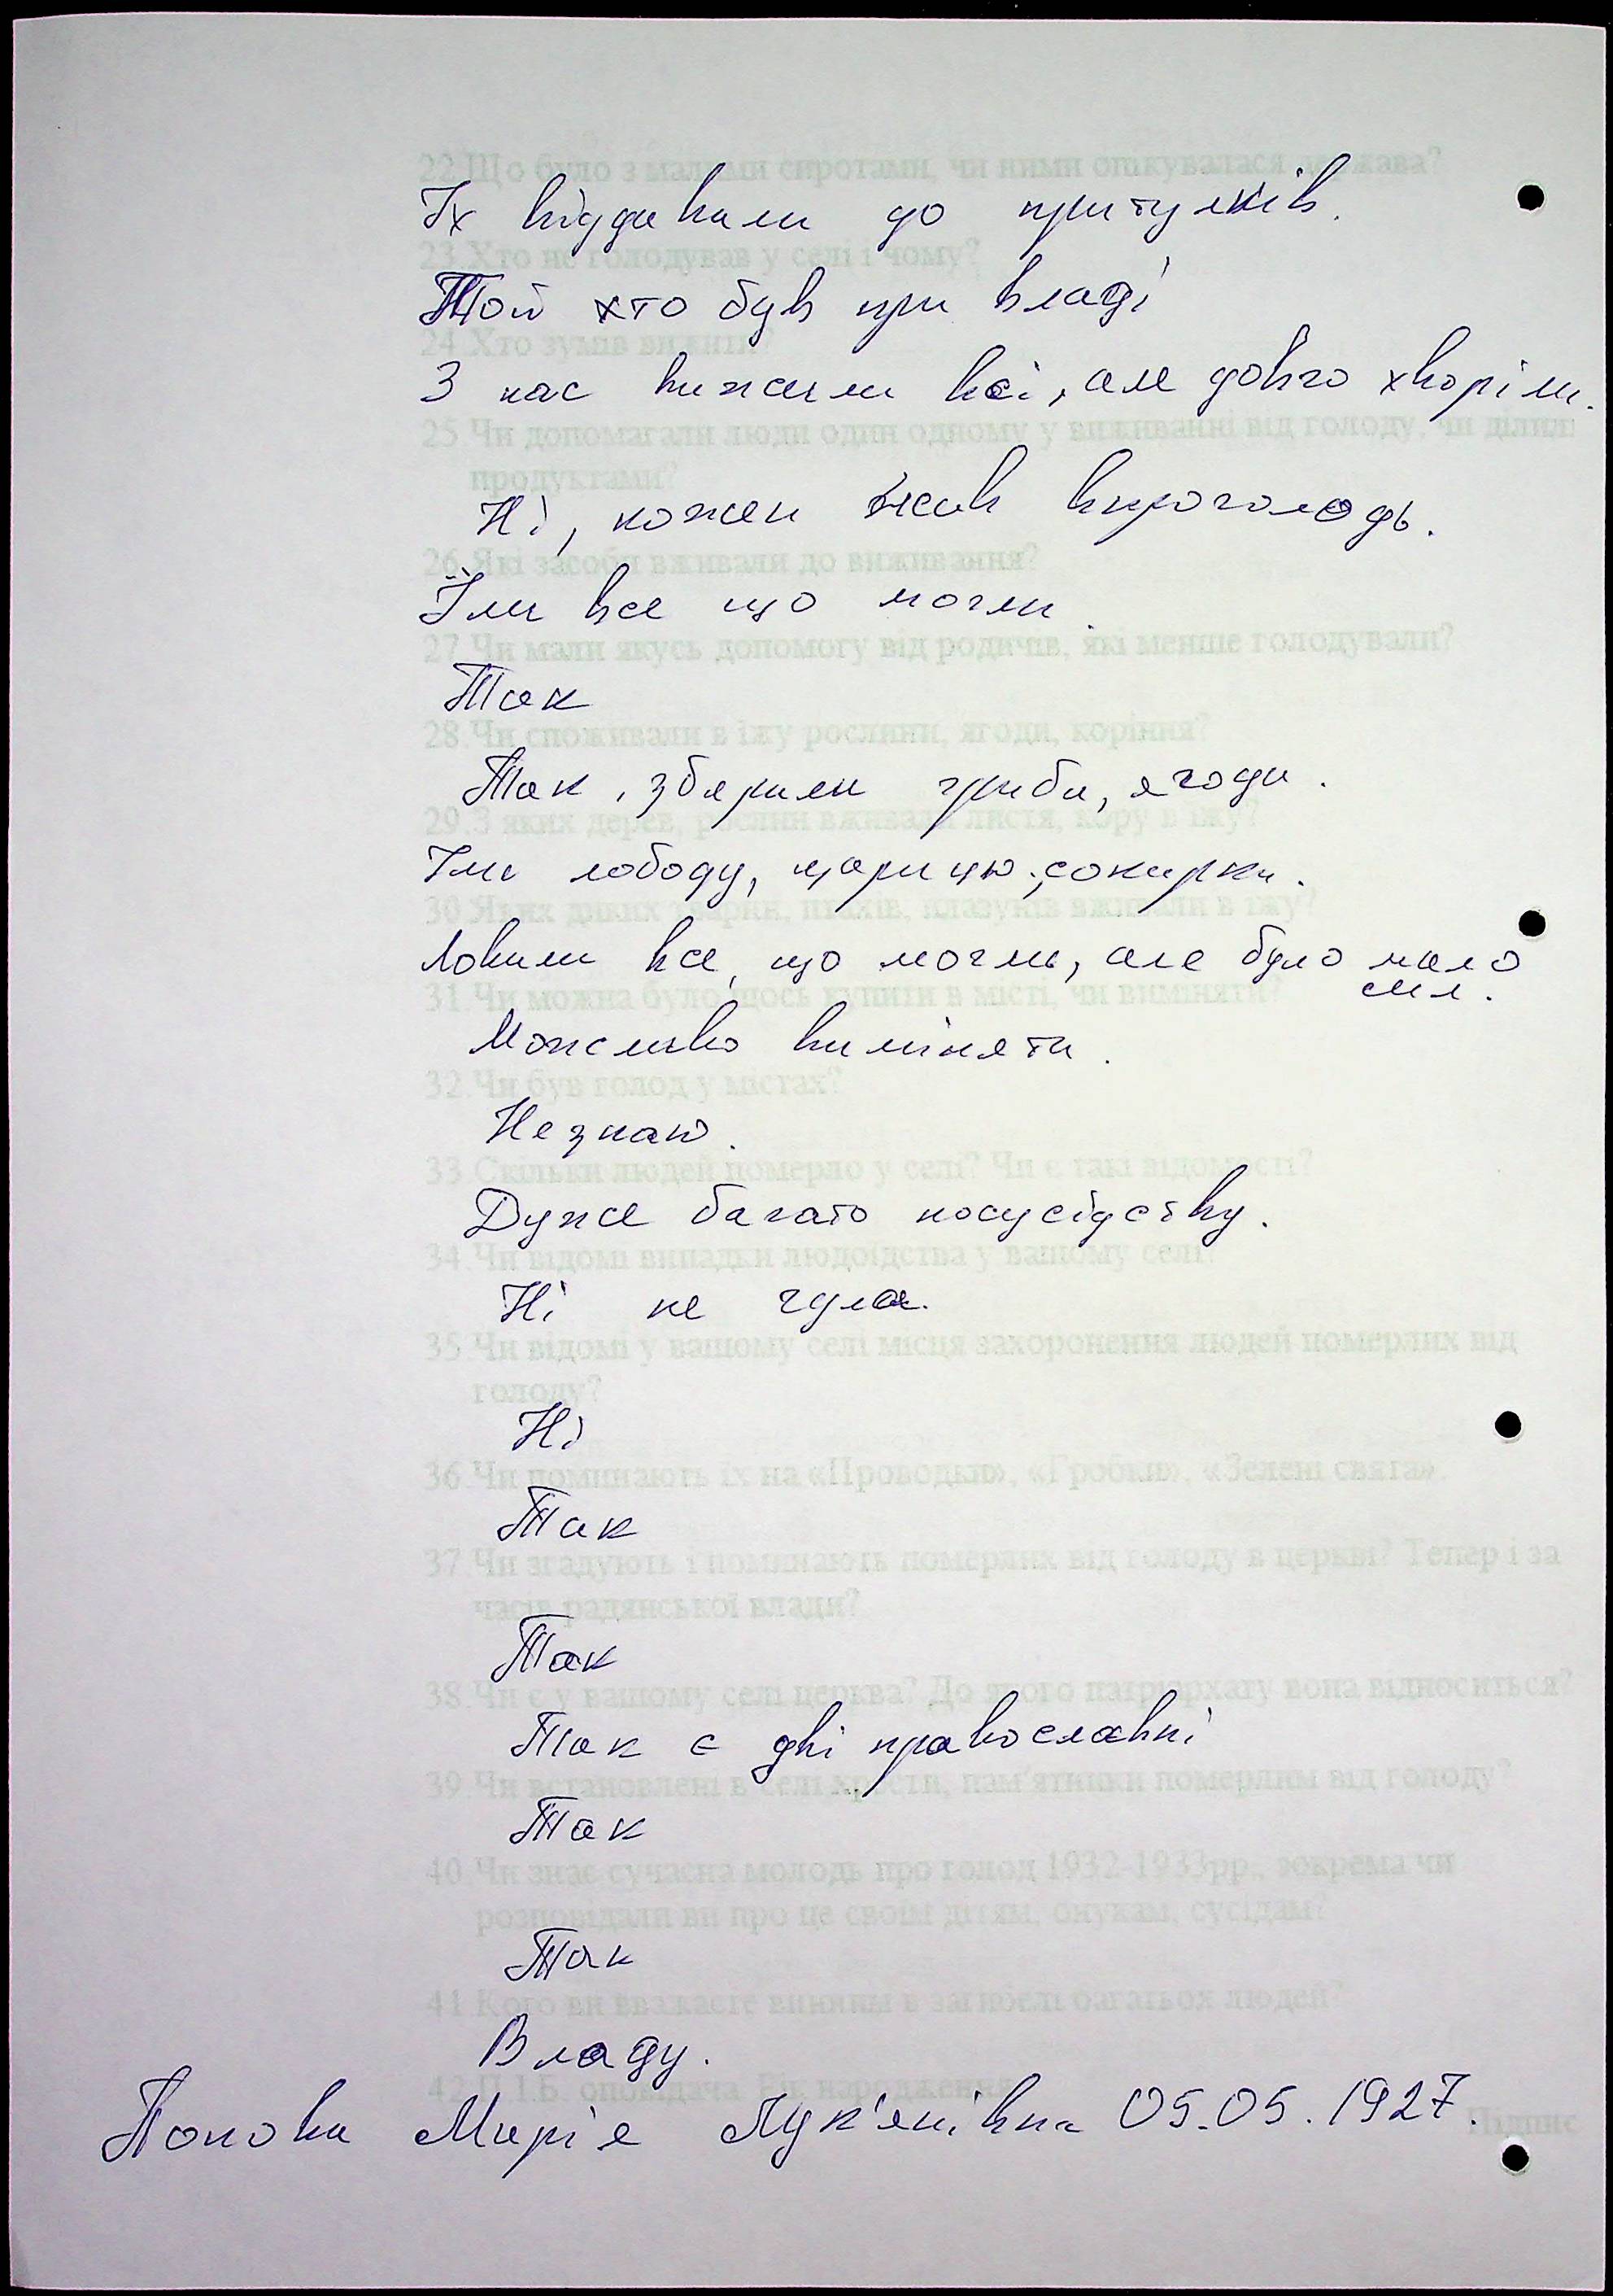 22.Що було з малими сиротами, чи ними опікувалася держава?
Їх віддавали до притулків.
23.Хто не голодував у селі і чому?
Той хто був при владі
24.Хто зумів вижити?
З нас вижили всі, але довго хворіли.
25.Чи допомагали люди один одному у виживанні від голоду, чи ділились
продуктами?
Ні, кожен жив впроголодь.
26.Які засоби вживали до виживання?
Їли все що могли.
27.Чи мали якусь допомогу від родичів, які менше голодували?
Так
28.Чи споживали в їжу рослини, ягоди, коріння?
Так, збирали гриби, ягоди.
29.З яких дерев, рослин вживали листя, кору в їжу?
Їли лободу, щирицю, сокирки.
30.Яких диких тварин, птахів, плазунів вживали в їжу?
Ловили все, що могли, але було мало
сил.
31.Чи можна було щось купити в місті, чи виміняти?
Можливо виміняти.
32.Чи був голод у містах?
Незнаю.
33.Скільки людей померло у селі? Чи є такі відомості?
Дуже багато посусідству.
34.Чи відомі випадки людоїдства у вашому селі?
Ні не чула.
35.Чи відомі у вашому селі місця захоронення людей померлих від
голоду?
Ні
36.Чи поминають їх на «Проводи», «Гробки», «Зелені свята».
Так
37.Чи згадують і поминають померлих від голоду в церкві? Тепер і за
часів радянської влади?
Так
38.Чи є у вашому селі церква? До якого патріархату вона відноситься?
Так є дві православні
39.Чи встановлені в селі хрести, пам'ятники померлим від голоду?
Так
40.Чи знає сучасна молодь про голод 1932-1933рр., зокрема чи
розповідали ви про це своїм дітям, онукам, сусідам?
Так
41.Кого ви вважаєте винним в загибелі багатьох людей?
Владу.
42.П.І.Б. оповідача. Рік народження
Попова Марія Лук'янівна 05.05.1927.
Підпис